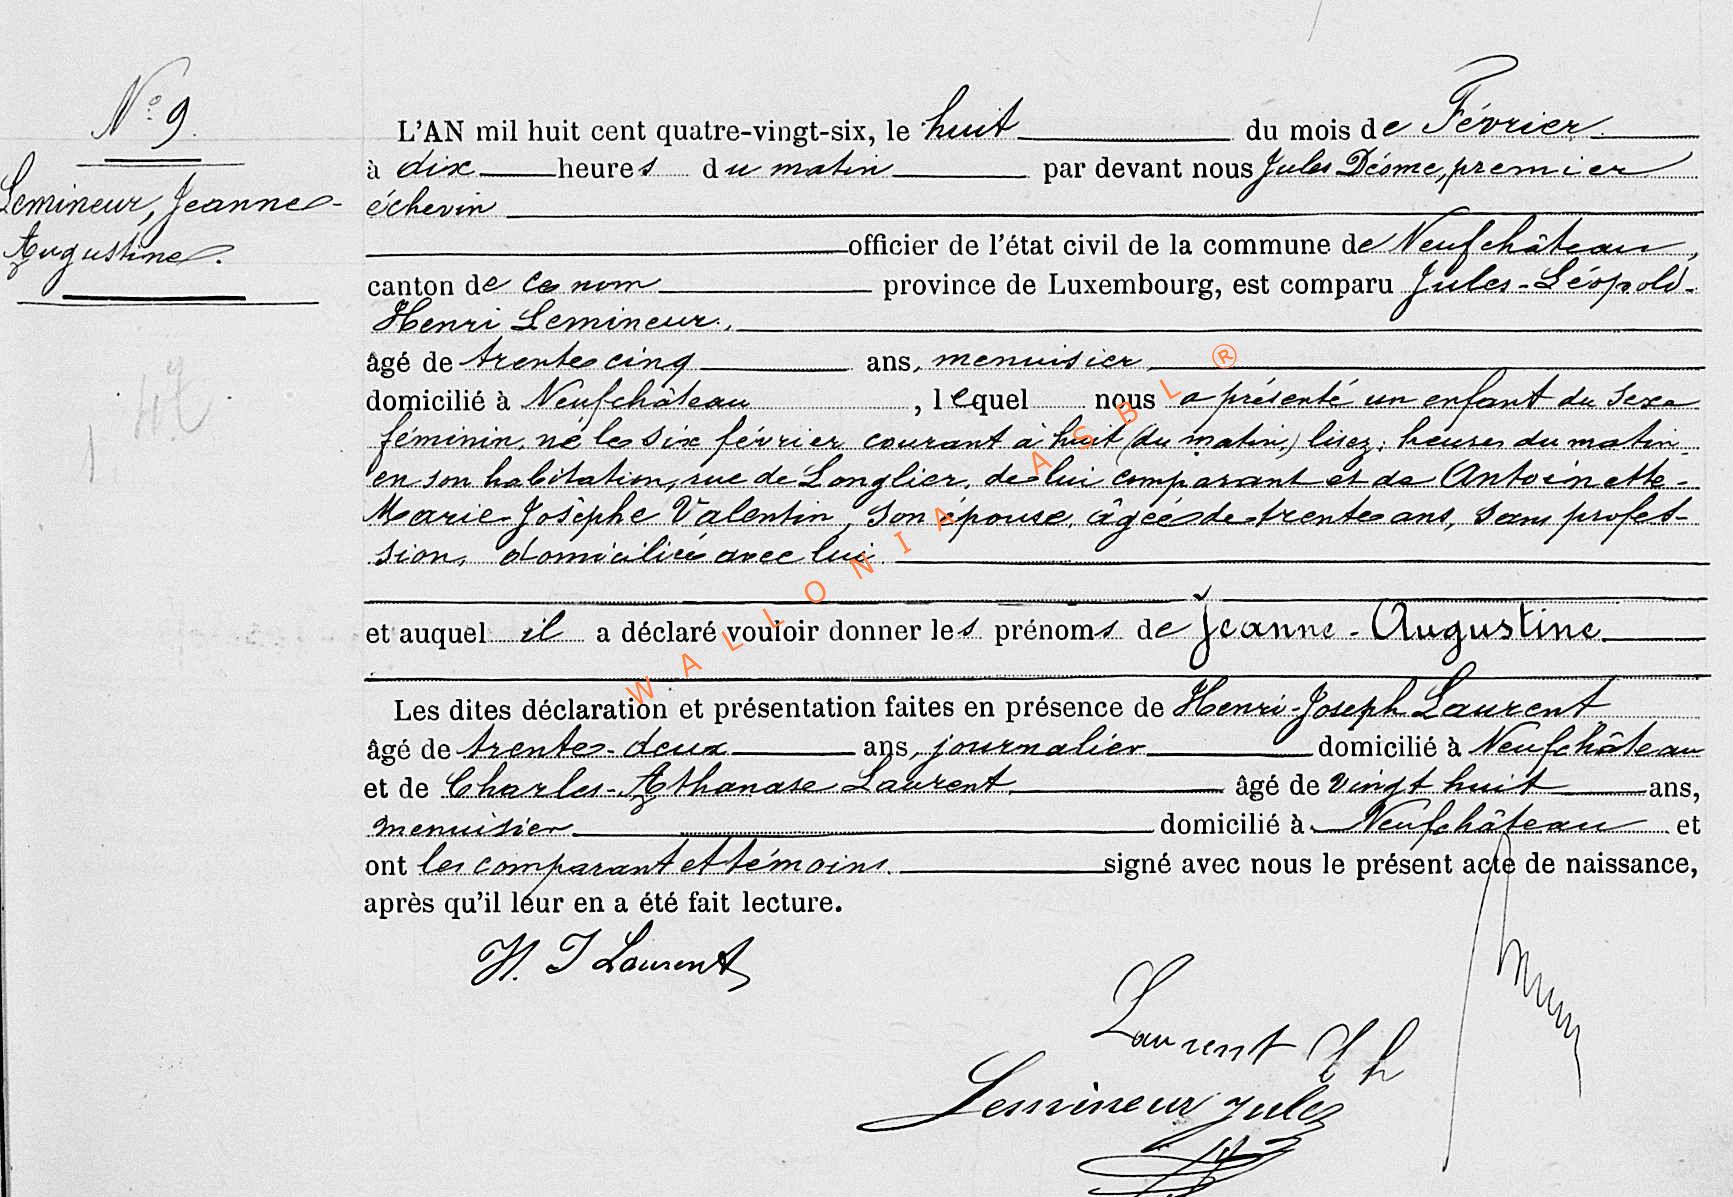 N° 9.
Lemineur, Jeanne-
Augustine.
L'AN mil huit cent quatre-vingt-six, le huit du mois de Février
à dix heures du matin par devant nous Jules Désme, premier
échevin
officier de l'état civil de la commune de Neufchâteau,
canton de ce nom province de Luxembourg, est comparu Jules-Léopold-
Henri Lemineur,
âgé de trente cinq ans, menuisier,
domicilié à Neufchâteau, lequel nous a présenté un enfant du sexe
féminin, né le six février courant à huit (du matin) lisez: heures du matin
en son habitation, rue de Longlier, de lui comparant et de Antoinette-
Marie-Josèphe Valentin, son épouse, âgée de trente ans, sans profes-
sion, domiciliée avec lui
et auquel il a déclaré vouloir donner les prénoms de Jeanne-Augustine
Les dites déclaration et présentation faites en présence de Henri-Joseph Laurent
âgé de trente-deux ans, journalier domicilié à Neufchâteau
et de Charles-Athanase Laurent âgé de vingt huit ans,
menuisier domicilié à Neufchâteau et
ont les comparant et témoins signé avec nous le présent acte de naissance,
après qu'il leur en a été fait lecture.
H. J Laurent
Laurent Ch
Lemineur Jules
WALLONIA ASBL ®